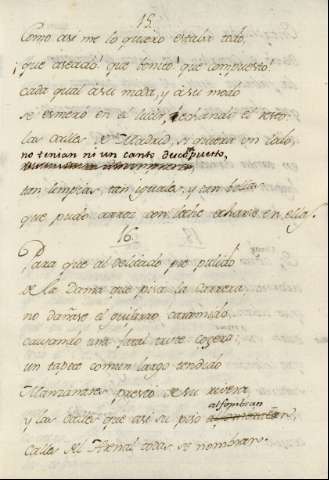 15.
Como asi me lo quiero estaba todo,
¡que aseado! que bonito! que compuesto!
cada qual à su moda, y à su modo
se esmeró en el lucir, hechando el resto:
las calles de Madrid, si quiera un lodo
no tenian ni un canto descompuesto,
tan limpias, tan iguales, y tan bellas
que pudo arroz con leche echarse en ellas.
16.
Para que al delicado pie pulido
de la Dama que pisa la Carrera
no dañase el guijarro
causando una fatal triste cogera
un tapete comun largo tendido
Manzanares prestó de su rivera
y las calles que asi su piso alfombran
calles del Arenal todas se nombran.